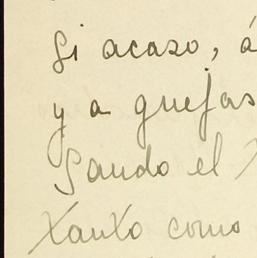 Si acaso, á
y a quejas
Sando el
Xanxo como